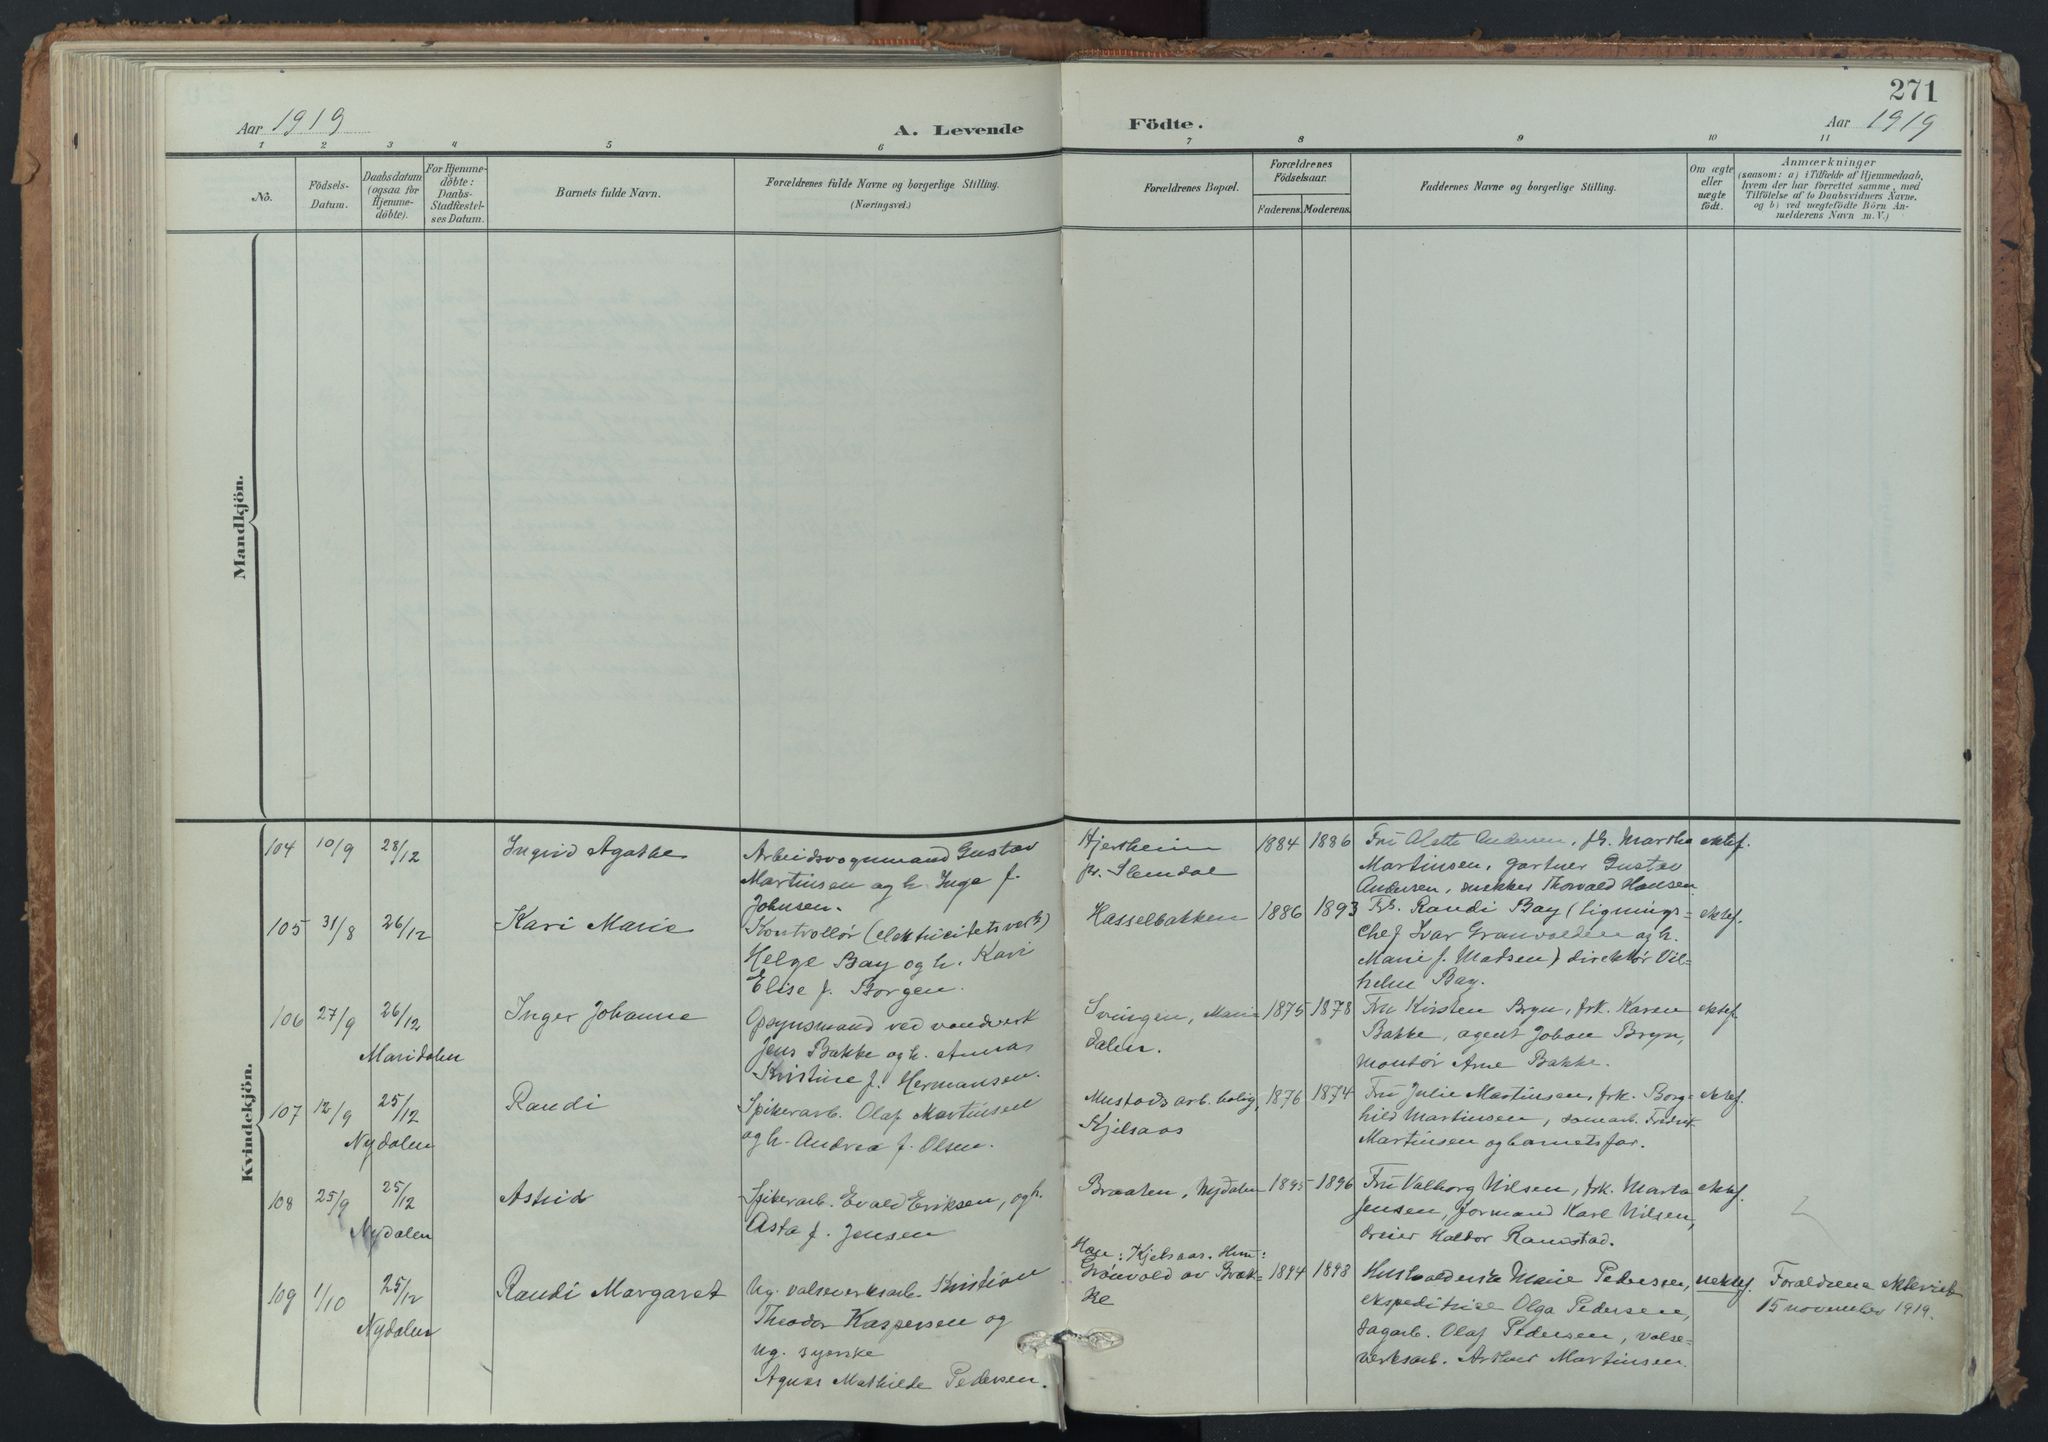 271
Aar 1919
A. Levende
Födte.
Aar 1919
1 2 3 4 5 6 7 8 9 10 11
No.
Födsels-
Datum.
Daabsdatum
(ogsaa for
Hjemme-
döbte).
For Hjemme-
döbte:
Daabs-
Stadfæstel-
ses Datum.
Barnets fulde Navn.
Forældrenes fulde Navne og borgerlige Stilling.
(Næringsvei.)
Forældrenes Bopæl.
Forældrenes
Födselsaar.
Faderens.
Moderens.
Faddernes Navne og borgerlige Stilling.
Om ægte
eller
uægte
födt.
Anmærkninger
(saasom: a) i Tilfælde af Hjemmedaab,
hvem der har forrettet samme, med
Tilföielse af to Daabsvidners Navne,
og b) ved uægtefödte Börn An-
melderens Navn m. V.)
Mandkjön.
Kvindekjön.
104 10/9 28/12 Ingrid Agathe
Arbeidsvognmand Gustav
Martinsen og h. Inga f.
Johnsen.
Hjertheim
pr. Slemdal
1884 1886
Fru Alette Andersen, fr. Martha
Martinsen, gartner Gustav
Andersen, snekker Thorvald Hansen
ektef.
105 31/8 26/12 Kari Marie
Kontrollør (elektricitetsverk)
Helge Bay og h. Kari
Elise f. Borgen.
Hasselbakken
1886 1893
Frk. Randi Bay (lignings=
chef Ivar Granvolden og h.
Marie f. Madsen) direktør Vil=
helm Bay.
ektef.
106 27/9 26/12 Inger Johanne
Maridalen
Opsynsmand ved vandverk
Jens Bakke og h. Anna
Kristine f. Hermansen.
Svingen, Mari
dalen.
1875 1878
Fru Kirsten Bryn, frk. Karen
Bakke, agent Johan Bryn,
montør Arne Bakke.
ektef.
107 12/9 25/12 Randi
Nydalen
Spikerarb. Olaf Martinsen
og h. Andrea f. Olsen.
Mustads arb. bolig,
Kjelsaas
1876 1874
Fru Julie Martinsen, frk. Borg=
hild Martinsen, sømarb. Fredrik
Martinsen og barnets far.
ektef.
108 25/9 25/12 Astrid
Nydalen
Spikerarb. Evald Eriksen, og h.
Asta f. Jensen
Braaten, Nydalen
1895 1896
Fru Valborg Nilsen, frk. Marta
Jensen, formand Karl Nilsen,
dreier Haldor Ramstad.
ektef.
109 1/10 25/12 Randi Margaret
Nydalen
Ug. valseverksarb. Kristian
Theodor Kaspersen og
ug. syerske
Agnes Mathilde Pedersen.
Han: Kjelsaas. Hun:
Grønvold av Bræk-
ke
1894 1898
Husholderske Marie Pedersen,
ekspeditrise Olga Pedersen,
sagarb. Olaf Pedersen, valse-
verksarb. Arthur Martinsen.
uektef.
Forældrene ekteviet
15 november 1919.